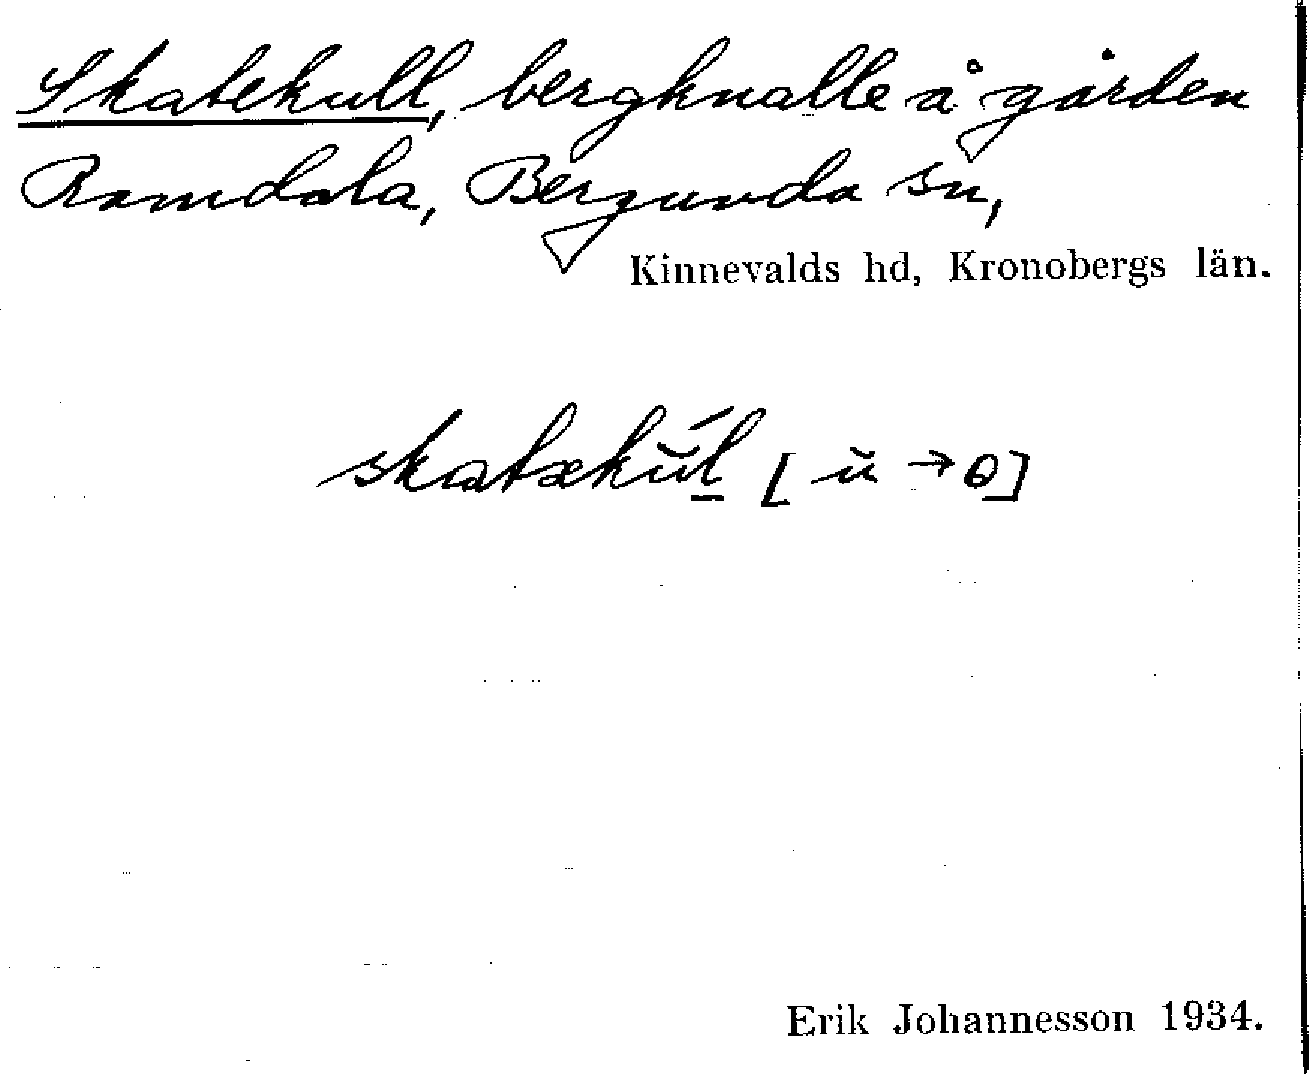 Skatekull, bergknalle å gården
Ramdala, Bergunda sn,
Kinnevalds hd, Kronobergs län.
skatækŭ́l̲ [ŭ → ɵ]
Erik Johannesson 1934.